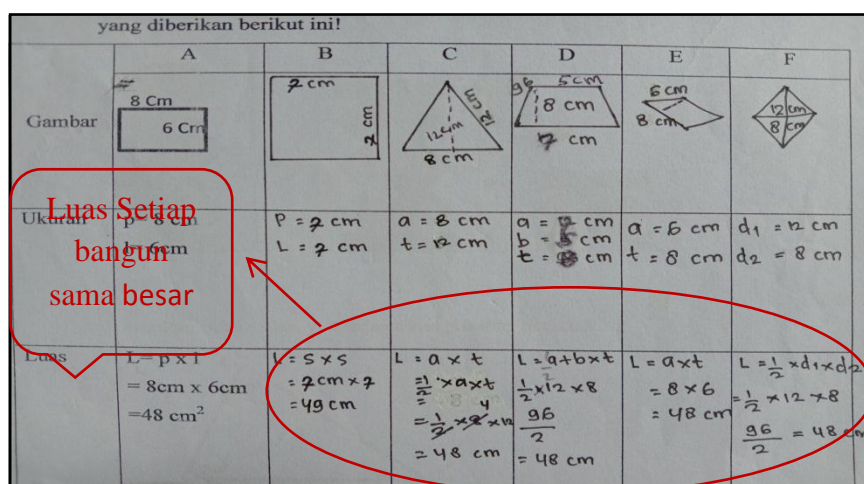 yang diberikan berikut ini!
A
B
C
D
E
F
Gambar
8 Cm
6 Cm
7 cm
7 cm
12 cm
12 cm
8 cm
96
5 cm
8 cm
7 cm
6 cm
8 cm
12 cm
8 cm
Ukuran
p= 8 cm
l= 6cm
P = 7 cm
L = 7 cm
a = 8 cm
t = 12 cm
a = 7 cm
b = 5 cm
t = 8 cm
a = 6 cm
t = 8 cm
d1 = 12 cm
d2 = 8 cm
Luas Setiap
bangun
sama besar
Luas
L= p x l
= 8cm x 6cm
=48 cm²
L = s x s
= 7 cm x 7
= 49 cm
L = a x t
= 1/2 x a x t
= 8
= 1/2 x 8 4 x 12
= 48 cm
L = a+b x t
2
1/2 x 12 x 8
96/2
= 48 cm
L = a x t
= 8 x 6
= 48 cm
L = 1/2 x d1 x d2
= 1/2 x 12 x 8
96/2 = 48 cm